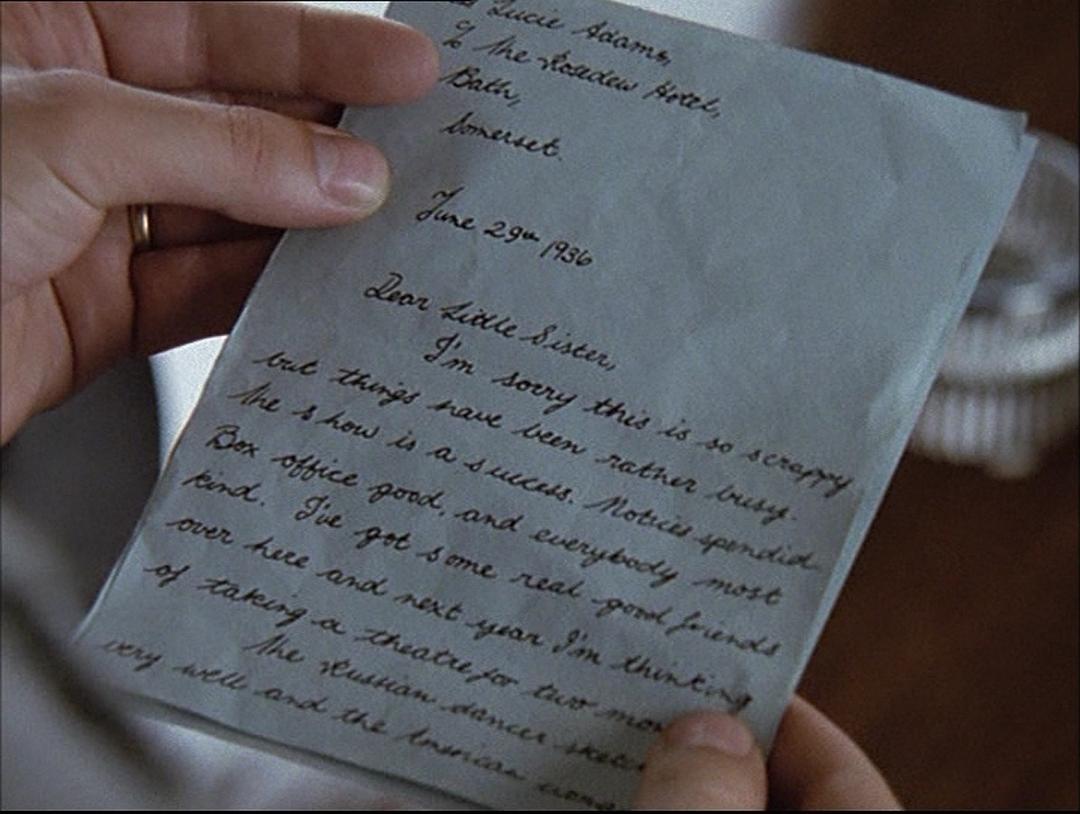 Lucie Adams,
To the Rosedew Hotel,
Bath,
Somerset.
June 29th 1936
Dear Little Sister,
I'm sorry this is so scrappy
but things have been rather busy.
The show is a success. Notices spendid
Box office good, and everybody most
kind. I've got some real good friends
over here and next year I'm thinking
of taking a theatre for two mon
The Russian dancer sketc
very well and the American